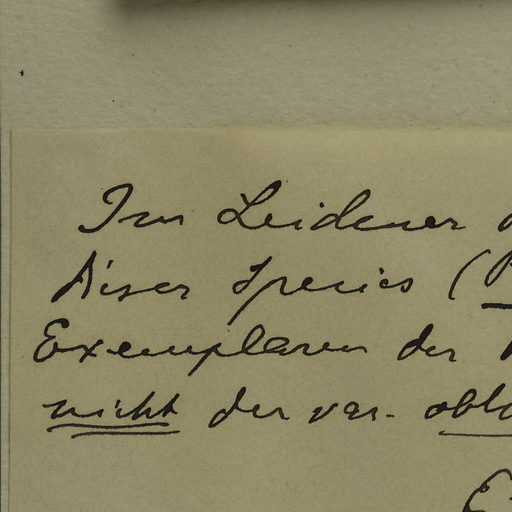 Im Leidener
dieser Species (
Exemplaren der
nicht der var. oblo